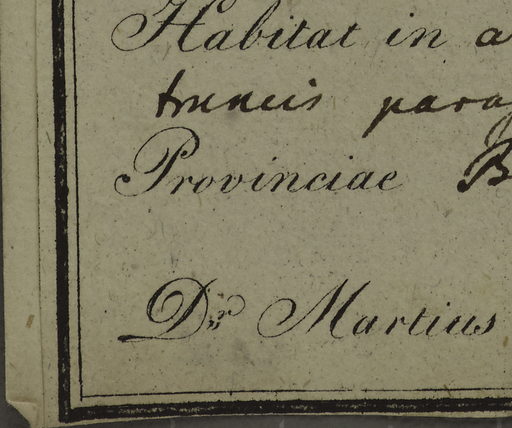 Habitat in a
truncis para
Provinciae B
Dr. Martius